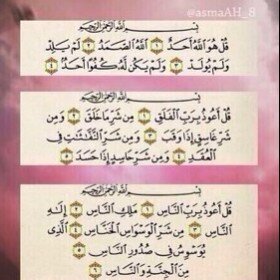 @asmaAH_8
بِسْمِ اللَّهِ الرَّحْمَٰنِ الرَّحِيمِ
قُلْ هُوَ اللَّهُ أَحَدٌ ١ اللَّهُ الصَّمَدُ ٢ لَمْ يَلِدْ
وَلَمْ يُولَدْ ٣ وَلَمْ يَكُن لَّهُ كُفُوًا أَحَدٌ ٤
بِسْمِ اللَّهِ الرَّحْمَٰنِ الرَّحِيمِ
قُلْ أَعُوذُ بِرَبِّ الْفَلَقِ ١ مِن شَرِّ مَا خَلَقَ ٢ وَمِن
شَرِّ غَاسِقٍ إِذَا وَقَبَ ٣ وَمِن شَرِّ النَّفَّاثَاتِ فِي
الْعُقَدِ ٤ وَمِن شَرِّ حَاسِدٍ إِذَا حَسَدَ ٥
بِسْمِ اللَّهِ الرَّحْمَٰنِ الرَّحِيمِ
قُلْ أَعُوذُ بِرَبِّ النَّاسِ ١ مَلِكِ النَّاسِ ٢ إِلَٰهِ
النَّاسِ ٣ مِن شَرِّ الْوَسْوَاسِ الْخَنَّاسِ ٤ الَّذِي
يُوَسْوِسُ فِي صُدُورِ النَّاسِ ٥
مِنَ الْجِنَّةِ وَالنَّاسِ ٦